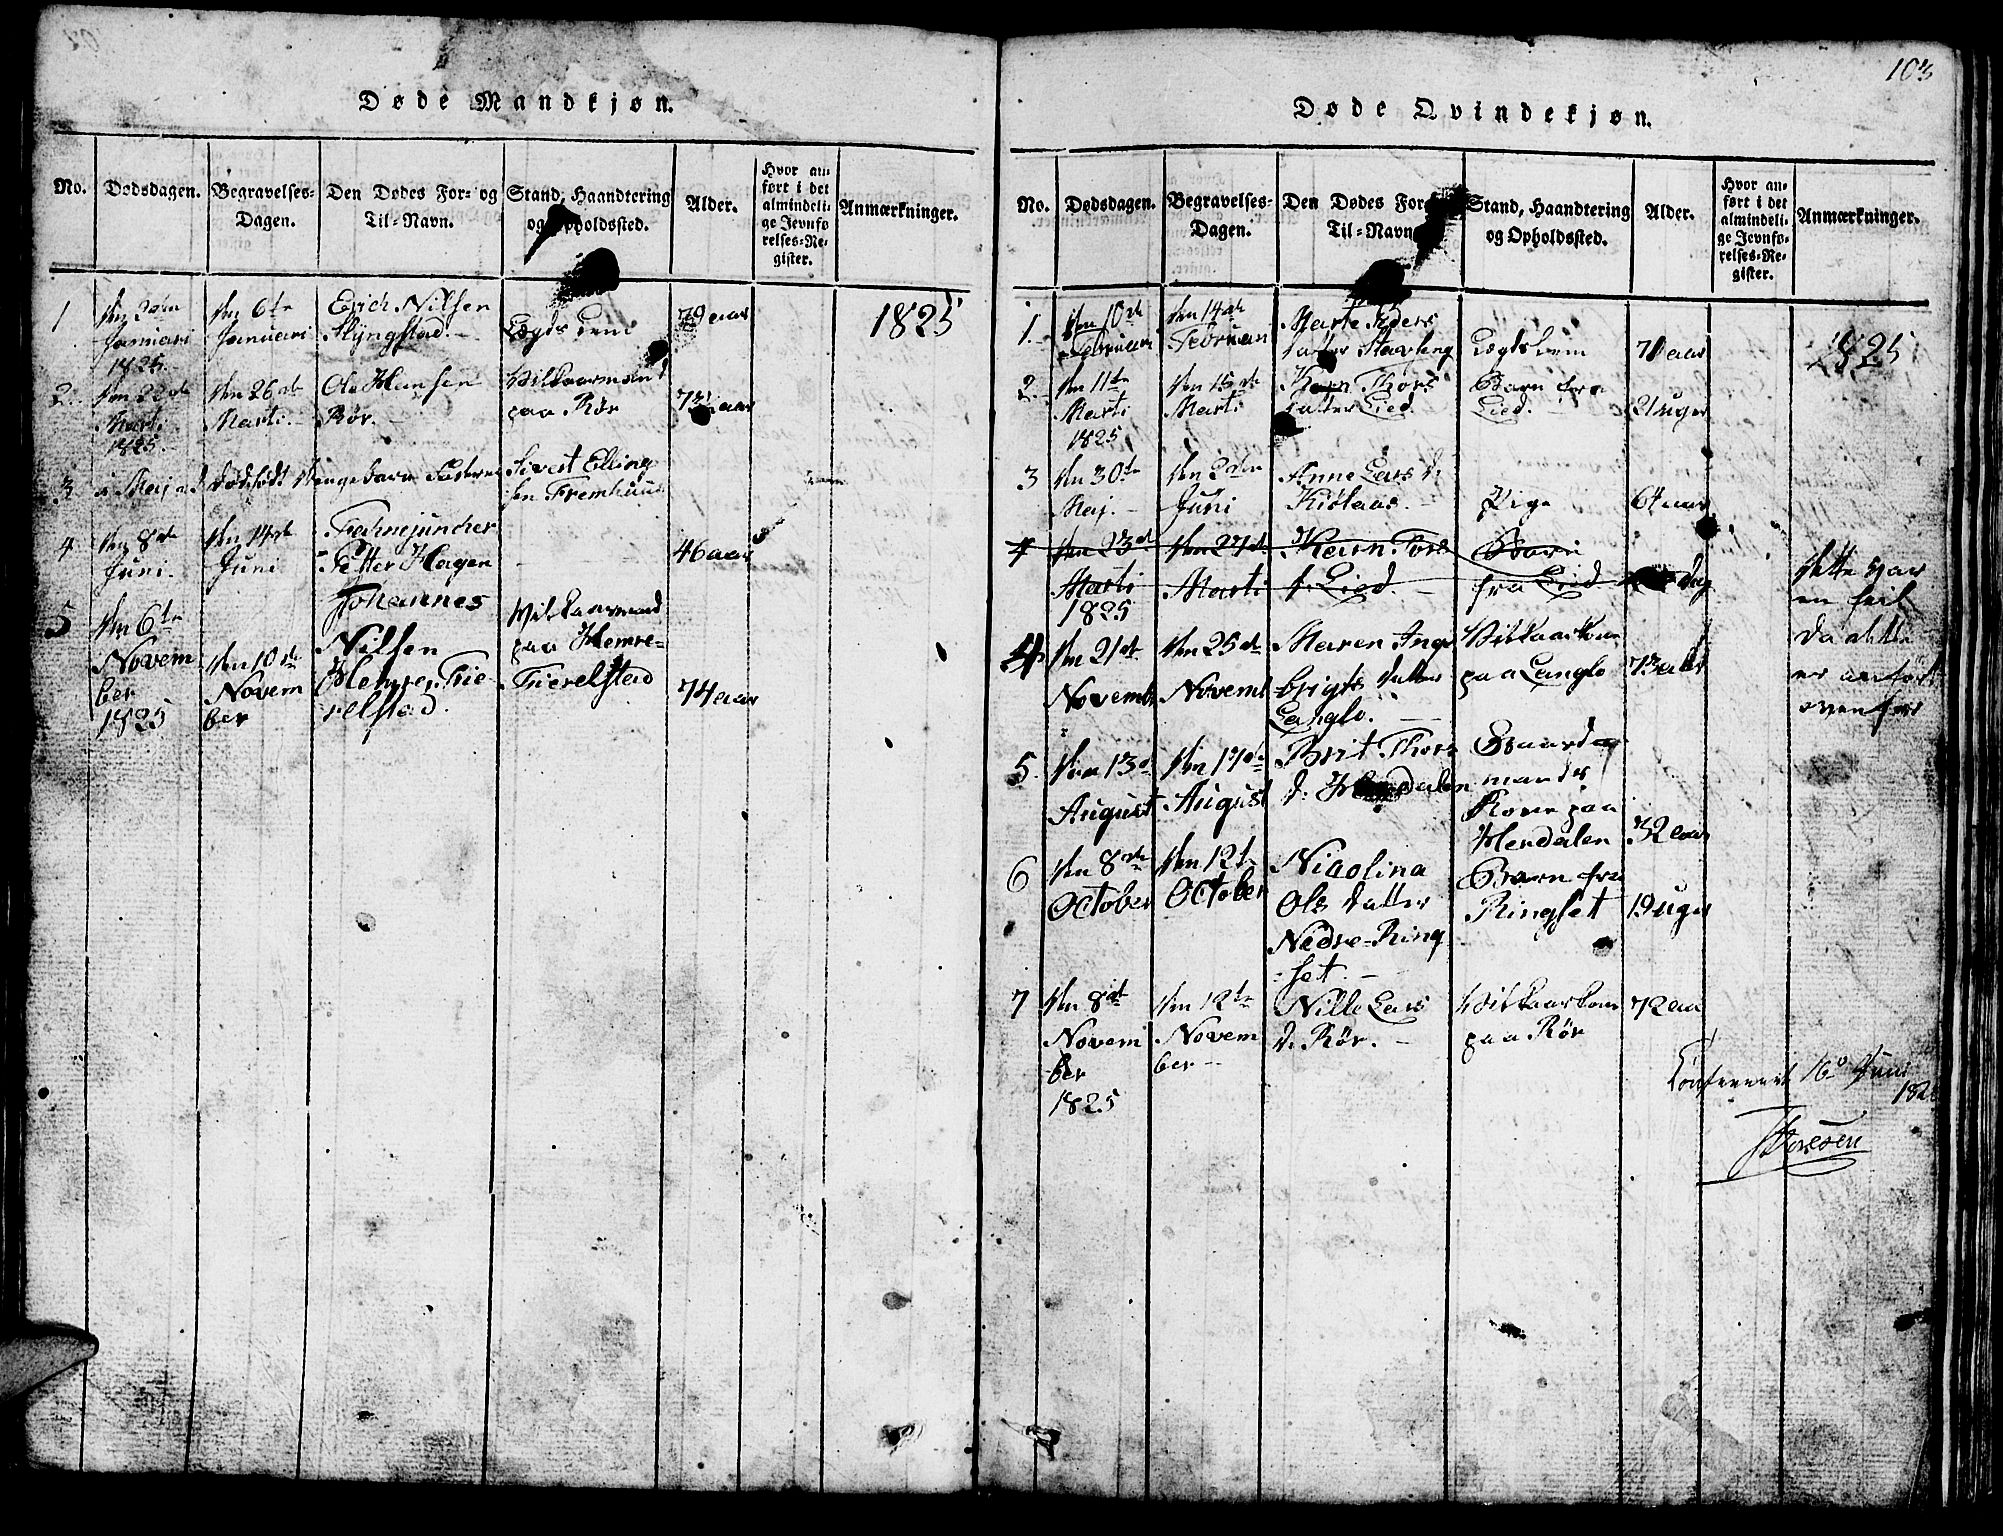 103
Døde Mandkjøn.
No.
Dødsdagen.
Begravelses-
Dagen.
Den Dødes For- og
Til-Navn.
Stand, Haandtering
og Opholdssted.
Alder.
Hvor an-
ført i det
almindeli-
ge Jevnfø-
relses-Re-
gister.
Anmærkninger.
1825
1
Januari
1825.
den 6te
Januari
Erich Nilsen
Slÿngstad.
Lægdslem
79 aar
2.
Marti
1825.
den 26de
Marti.
Ole Hansen
Rør.
Vilkaarmand
paa Rør
aar
3
i Maj
dødfødt Drengebarn Faderen
Sivert Elling
sen Fremhuus
4
den 8de
Juni.
den 14de
Juni
Petter Hagen
46 aar
5
den 6te
Novem
ber
1825
den 10de
Novem
ber
Johannes
Nilsen
Hemre Fie-
relstad.
Vilkaarmand
paa Hemre-
Fierelstad
74 aar
Døde Qvindekjøn.
No.
Dødsdagen.
Begravelses-
Dagen.
Den Dødes For
Til-Navn
Stand, Haandtering
og Opholdssted.
Alder.
Hvor an-
ført i det
almindeli-
ge Jevnfø-
relses-Re-
gister.
Anmærkninger.
1825
1.
den 10de
Februari
den 14de
Februari
Marte Peders
datter
Lægdslem
aar
2.
den 11te
Marti
1825
den 15de
Marti
Karn Thors
datter Lied.
Barn fra
Lied.
uger
3
den 30te
Maj.
Juni
Anne Lars d.
Kiølaas.
Pige
aar
4
den 23de
Marti
1825
den 27de
Marti
Karn Tors
d. Lied.
Barn
fra Lied
dag
dette var
en feil
da dette
er anført
ovenfor
4
den 21de
Novembr
den 25de
Novemb
Maren Inge
brigts datter
Langlo.
Vilkaarkone
paa Langlo
73 aar
5
den 13de
August
den 17de
August
Brit Thors
d. Herdalen
Gaard
mands
Kone paa
Herdalen
32 aar
6
den 8de
October
den 12te
October
Nicolina
Ols datter
Nedre-Ring
set.
Barn fra
Ringset
19 uger
7
den 8de
Novem
ber
1825
den 12te
Novem
ber
Nille Lars
d. Rør.
Vilkaarkone
paa Rør
72 aa
Confereret 16 Juni